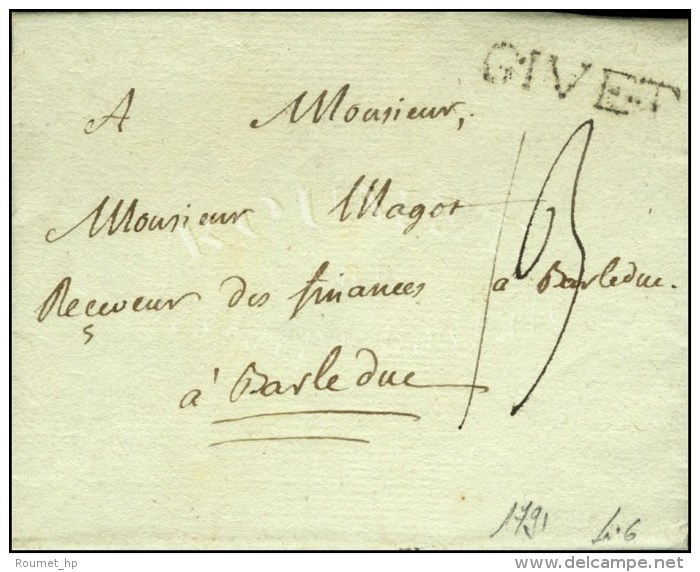 GIVET
A Monsieur,
Monsieur Magot
Reçeveur des finances à Barleduc.
à Barleduc
13
1791
Roumet_hp
www.delcampe.net